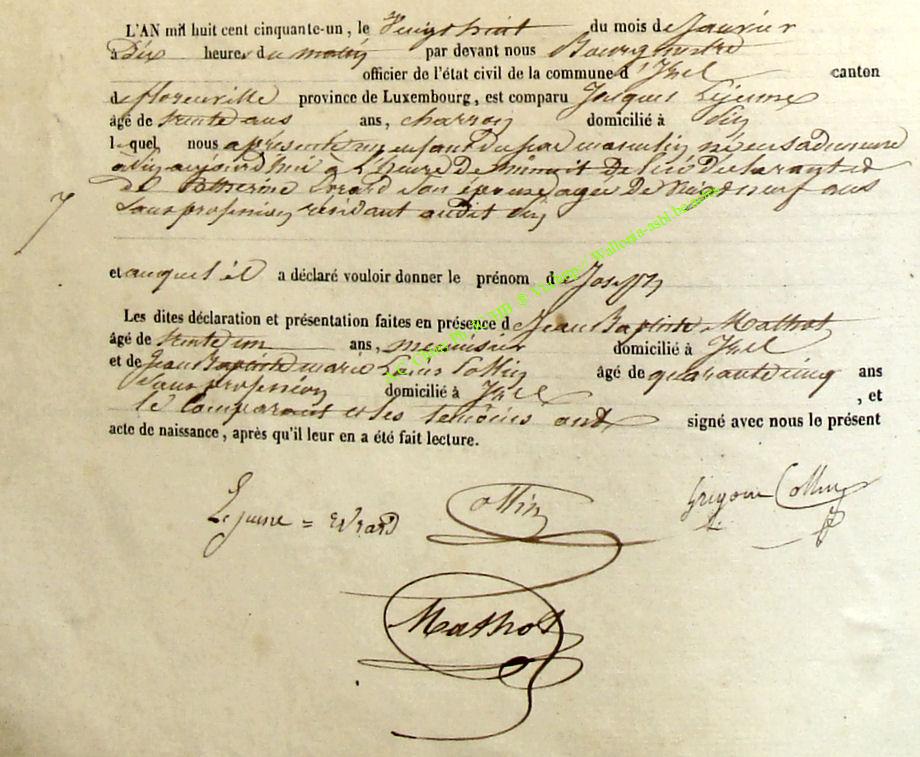 L'AN mil huit cent cinquante-un, le Vingt huit du mois de Janvier
à Dix heures du matin par devant nous Bourgmestre
officier de l'état civil de la commune d'Izel canton
de florenville province de Luxembourg, est comparu Jacques Lejeune
âgé de trente ans ans, charron domicilié à Pin
lequel nous a présenté un enfant du sexe masculin né en sa demeure
à Pin aujourd'hui à L'heure De minuit de lui Déclarant et
de Catherine Evrard son épouse agée De Vingt neuf ans
Sans profession résidant audit Pin
7
et auquel il a déclaré vouloir donner le prénom de Joseph
Les dites déclaration et présentation faites en présence de Jean Baptiste Mathot
âgé de trente un ans, menuisier domicilié à Izel
et de Jean Baptiste marie Collin âgé de quarante cinq ans
Sans profession domicilié à Izel , et
le Comparant et les témoins ont signé avec nous le présent
acte de naissance, après qu'il leur en a été fait lecture.
Lejeune = Evrard Collin Grégoire Collin
Mathot